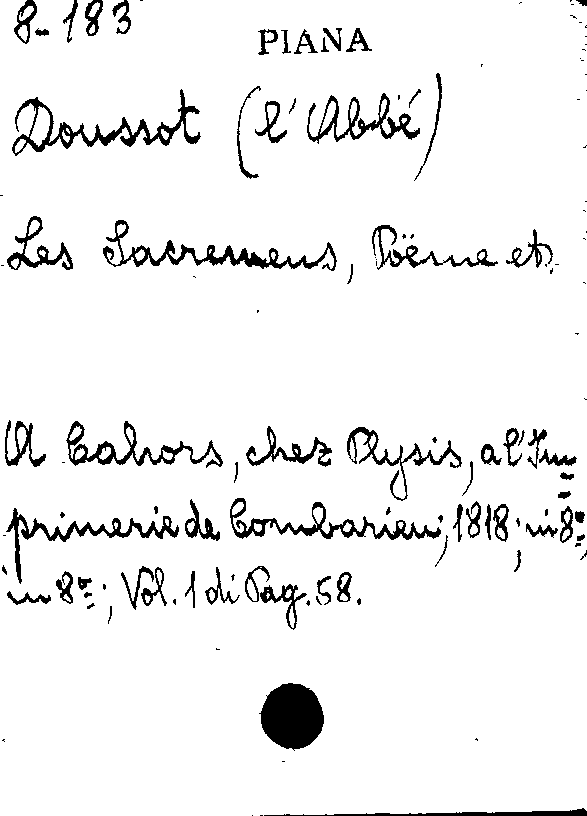 8-183
PIANA
Doussot (l'Abbé)
Les Sacremens, Poëme etc.
A Cahors, chez Plysis, a l'Im=
primerie de Combarieu; 1818; in 8º;
in 8º; Vol. 1 di Pag. 58.